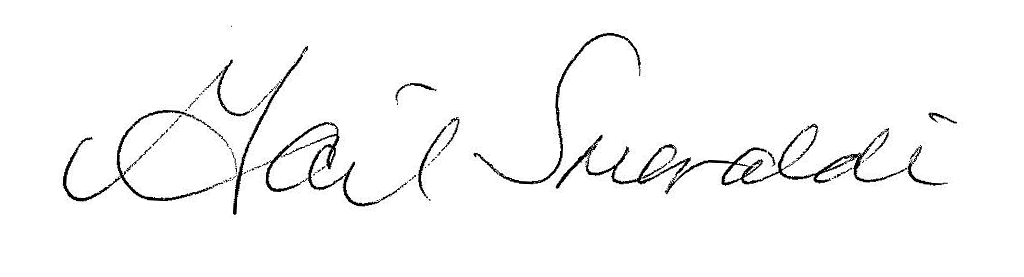 Gail Smeraldi